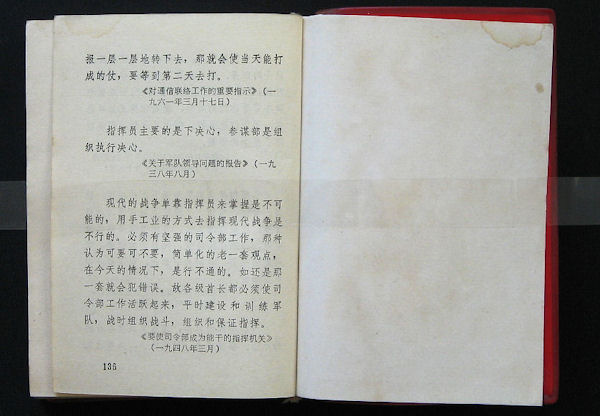 报一层一层地转下去，那就会使当天能打
成的仗，要等到第二天去打。
《对通信联络工作的重要指示》（一
九六一年三月十七日）
指挥员主要的是下决心，参谋部是组
织执行决心。
《关于军队领导问题的报告》（一九
三八年八月）
现代的战争单靠指挥员来掌握是不可
能的，用手工业的方式去指挥现代战争是
不行的。必须有坚强的司令部工作，那种
认为可要可不要，简单化的老一套观点，
在今天的情况下，是行不通的。如还是那
一套就会犯错误。故各级首长都必须使司
令部工作活跃起来，平时建设和训练军
队，战时组织战斗，组织和保证指挥。
《要使司令部成为能干的指挥机关》
（一九四八年三月）
136